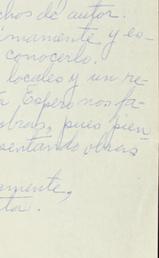 chos de autor.
imamente y es-
conocerlo.
locales y un re-
a Espero nos fa-
obras, pues pien-
sentando obras
amente,
ta.